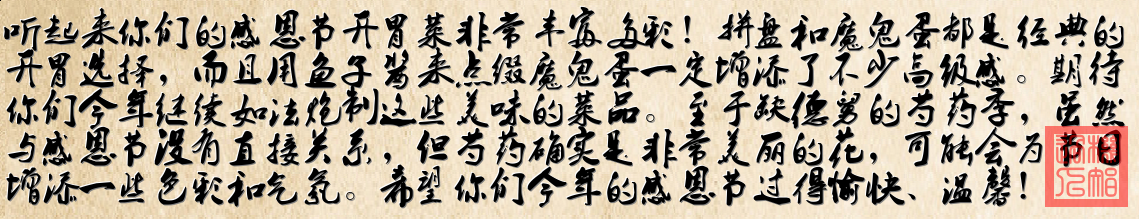 听起来你们的感恩节开胃菜非常丰富多彩！拼盘和魔鬼蛋都是经典的
开胃选择，而且用鱼子酱来点缀魔鬼蛋一定增添了不少高级感。期待
你们今年继续如法炮制这些美味的菜品。至于缺德舅的芍药季，虽然
与感恩节没有直接关系，但芍药确实是非常美丽的花，可能会为节日
增添一些色彩和气氛。希望你们今年的感恩节过得愉快、温馨！